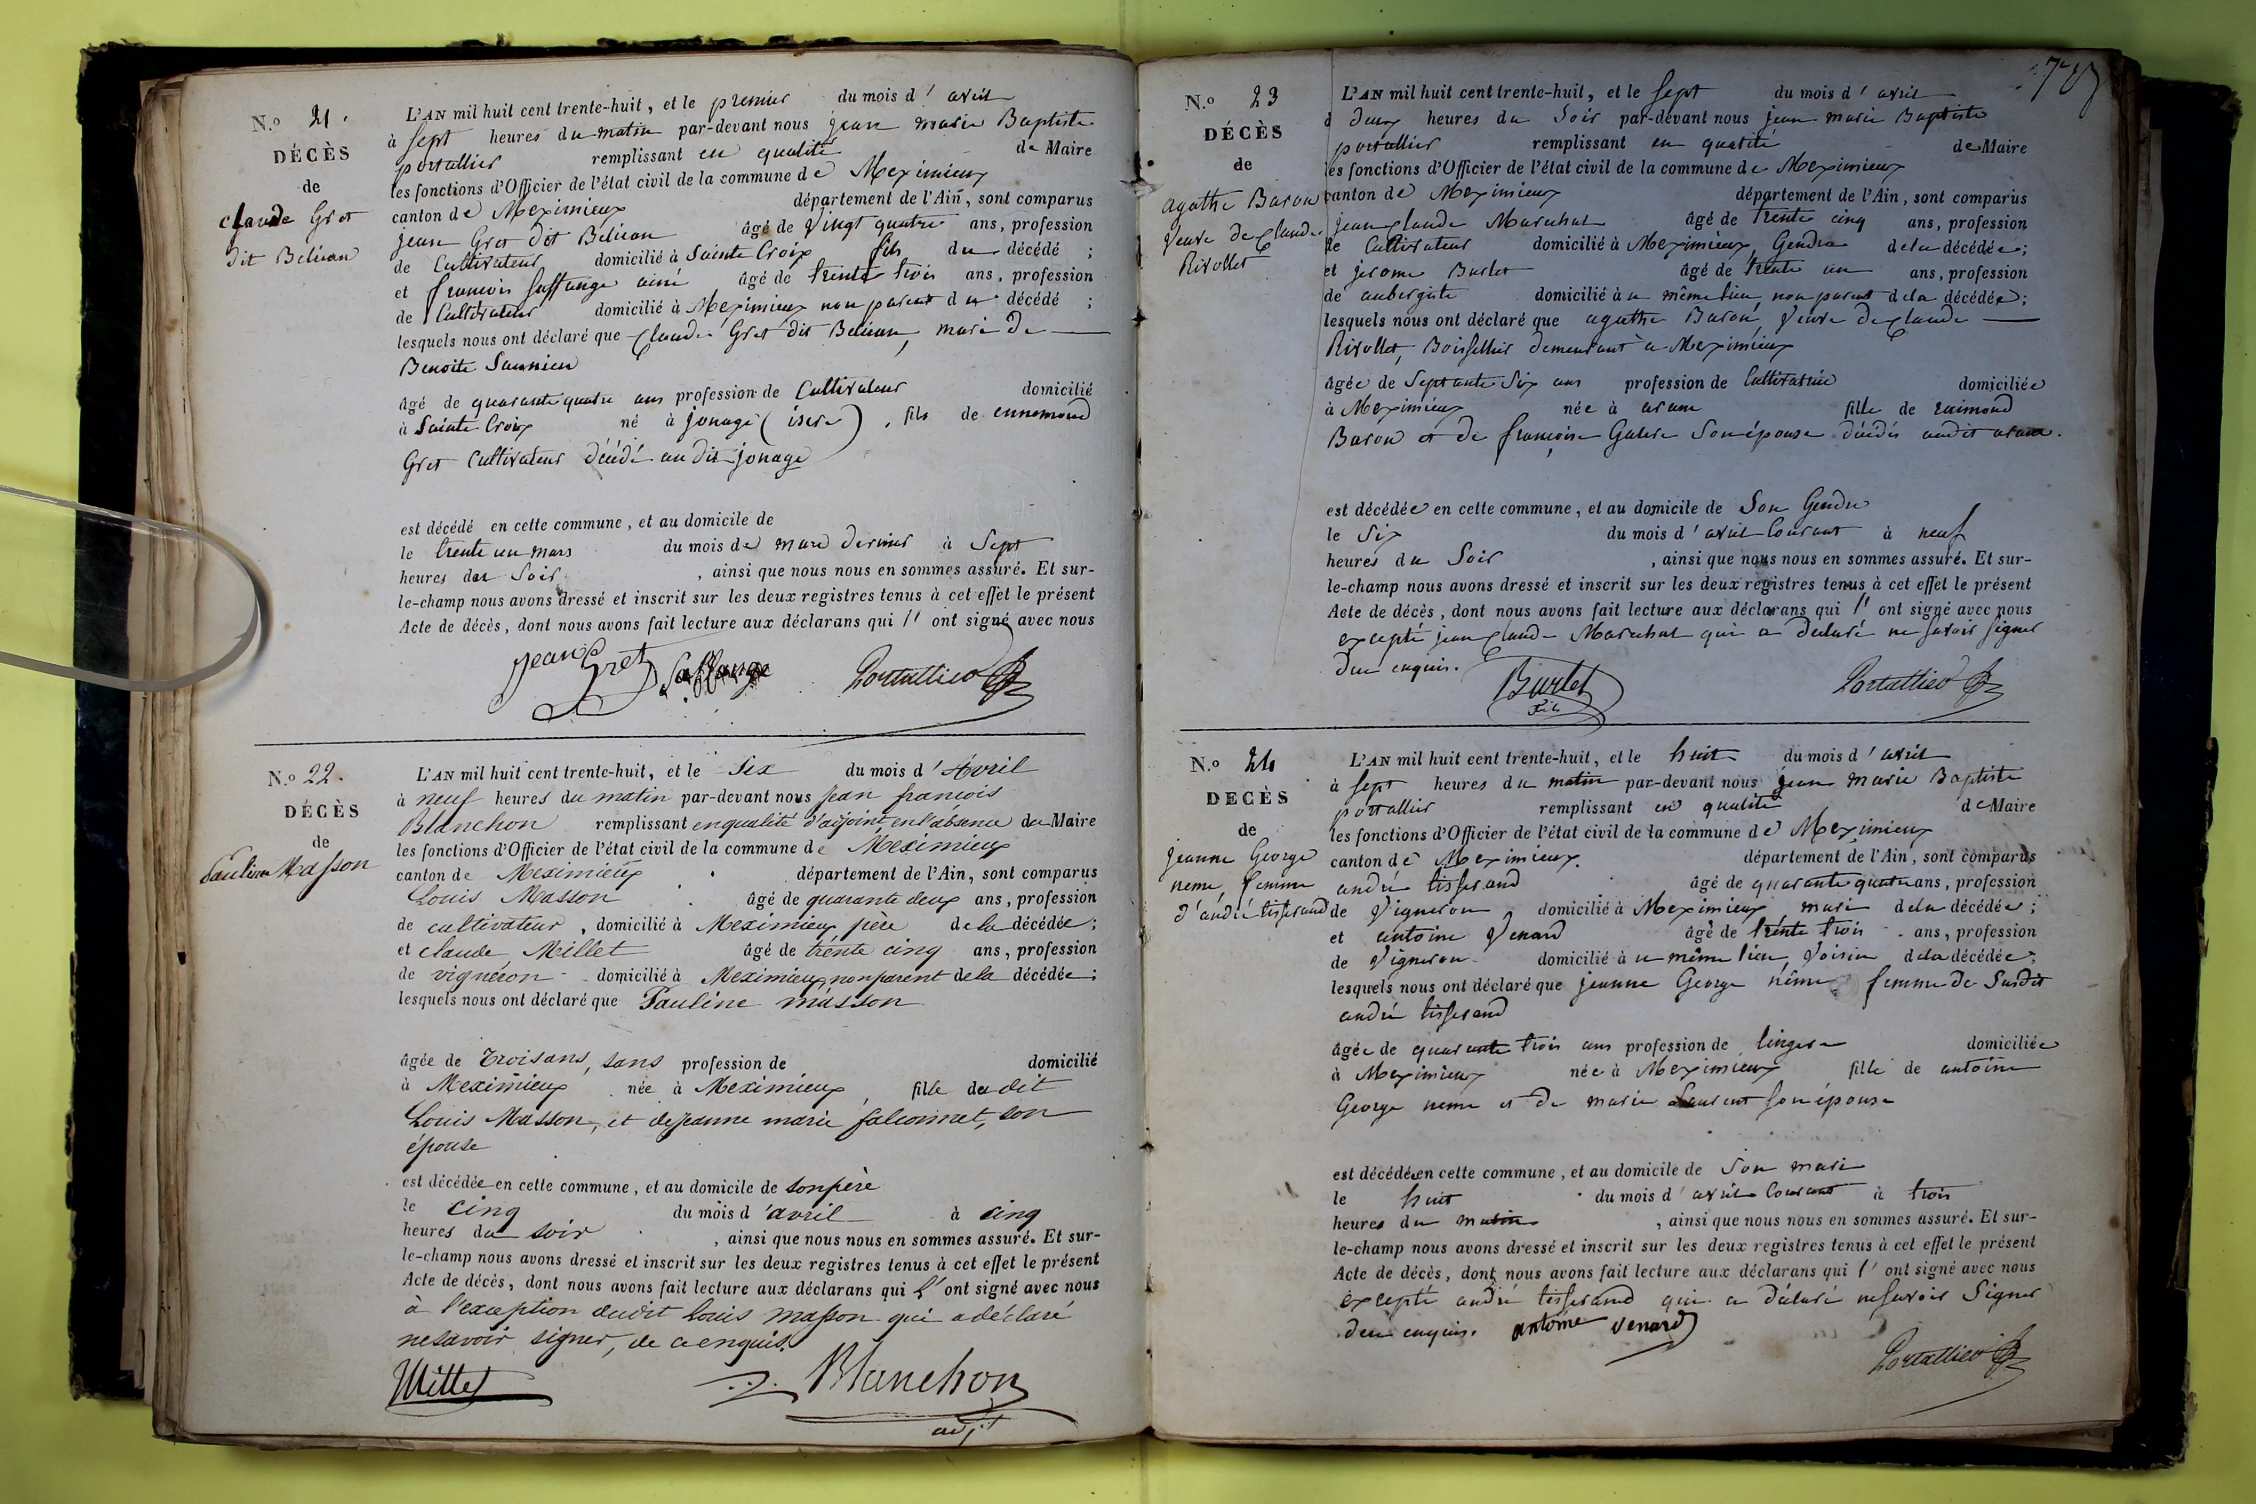 N.o 21.
DÉCÈS
de
claude Gret
dit Belican
L'AN mil huit cent trente-huit, et le premier du mois d'avril
à sept heures du matin par-devant nous jean marie Baptiste
portallier remplissant en qualité de Maire
les fonctions d'Officier de l'état civil de la commune de Meximieux
canton de Meximieux département de l'Ain, sont comparus
jean Gret dit Belican âgé de vingt quatre ans, profession
de Cultivateur domicilié à Sainte Croix fils du décédé ;
et francois Saffange ainé âgé de trente trois ans, profession
de Cultivateur domicilié à Meximieux non parent du décédé ;
lesquels nous ont déclaré que Claude Gret dit Belican, mari de
Benoite Saunier
âgé de quarante quatre ans profession de Cultivateur domicilié
à Sainte Croix né à jonage (isere), fils de ennemond
Gret Cultivateur décédé au dit jonage
est décédé en cette commune, et au domicile de
le trente un mars du mois de mars dernier à Sept
heures du Soir, ainsi que nous nous en sommes assuré. Et sur-
le-champ nous avons dressé et inscrit sur les deux registres tenus à cet effet le présent
Acte de décès, dont nous avons fait lecture aux déclarans qui l' ont signé avec nous
jean Gret Saffange Portallier
N.o 22.
DÉCÈS
de
Pauline Masson
L'AN mil huit cent trente-huit, et le Six du mois d'Avril
à neuf heures du matin par-devant nous jean francois
Blanchon remplissant en qualité d'adjoint en l'absence du Maire
les fonctions d'Officier de l'état civil de la commune de Meximieux
canton de Meximieux département de l'Ain, sont comparus
Louis Masson âgé de quarante deux ans, profession
de cultivateur, domicilié à Meximieux père de la décédée ;
et claude Millet âgé de trente cinq ans, profession
de vigneron domicilié à Meximieux, non parent de la décédée ;
lesquels nous ont déclaré que Pauline masson
âgée de trois ans, sans profession de domicilié
à Meximieux née à Meximieux, fille du dit
Louis Masson, et de jeanne marie falconnet, son
épouse
est décédée en cette commune, et au domicile de son père
le cinq du mois d'avril à cinq
heures du soir, ainsi que nous nous en sommes assuré. Et sur-
le-champ nous avons dressé et inscrit sur les deux registres tenus à cet effet le présent
Acte de décès, dont nous avons fait lecture aux déclarans qui l' ont signé avec nous
à l'exception dudit Louis masson qui a déclaré
ne savoir signer, de ce enquis.
Millet Blanchon
adjt
N.o 23
DÉCÈS
de
agathe Baron
veuve de Claude
Rivollet
L'AN mil huit cent trente-huit, et le sept du mois d'avril
à deux heures du Soir par-devant nous jean marie Baptiste
portallier remplissant en qualité de Maire
les fonctions d'Officier de l'état civil de la commune de Meximieux
canton de Meximieux département de l'Ain, sont comparus
jean claude Marechal âgé de trente cinq ans, profession
de Cultivateur domicilié à Meximieux, Gendre de la décédée ;
et jerome Burlet âgé de trente un ans, profession
de aubergiste domicilié à u même lieu, non parent de la décédée ;
lesquels nous ont déclaré que agathe Baron, veuve de claude
Rivollet, Boissellier demeurant à Meximieux
âgée de Septante Six ans profession de Cultivatrice domiciliée
à Meximieux née à aranc fille de raimond
Baron et de françoise son épouse décédés audit aranc.
est décédée en cette commune, et au domicile de Son Gendre
le Six du mois d'avril Courant à neuf
heures du Soir, ainsi que nous nous en sommes assuré. Et sur-
le-champ nous avons dressé et inscrit sur les deux registres tenus à cet effet le présent
Acte de décès, dont nous avons fait lecture aux déclarans qui l' ont signé avec nous
excepté jean claude Marechal qui a déclaré ne savoir signer
de ce enquis.
Burlet fils Portallier
N.o 24
DÉCÈS
de
jeanne George
neme, femme
d'andré tisserand
L'AN mil huit cent trente-huit, et le huit du mois d'avril
à sept heures du matin par-devant nous jean marie Baptiste
portallier remplissant en qualité de Maire
les fonctions d'Officier de l'état civil de la commune de Meximieux
canton de Meximieux. département de l'Ain, sont comparus
andré tisserand âgé de quarante quatre ans, profession
de Vigneron domicilié à Meximieux mari de la décédée ;
et antoine Venard âgé de trente trois ans, profession
de Vigneron domicilié à u même lieu, Voisin de la décédée ;
lesquels nous ont déclaré que jeanne George neme femme de Susdit
andré tisserand
âgée de quarante trois ans profession de lingere domiciliée
à Meximieux née à Meximieux fille de antoine
George neme et de marie Laurent son épouse
est décédée en cette commune, et au domicile de Son mari
le huit du mois d'avril Courant à trois
heures du matin, ainsi que nous nous en sommes assuré. Et sur-
le-champ nous avons dressé et inscrit sur les deux registres tenus à cet effet le présent
Acte de décès, dont nous avons fait lecture aux déclarans qui l' ont signé avec nous
excepté andré tisserand qui a déclaré ne savoir Signer
de ce enquis. antoine venard
Portallier